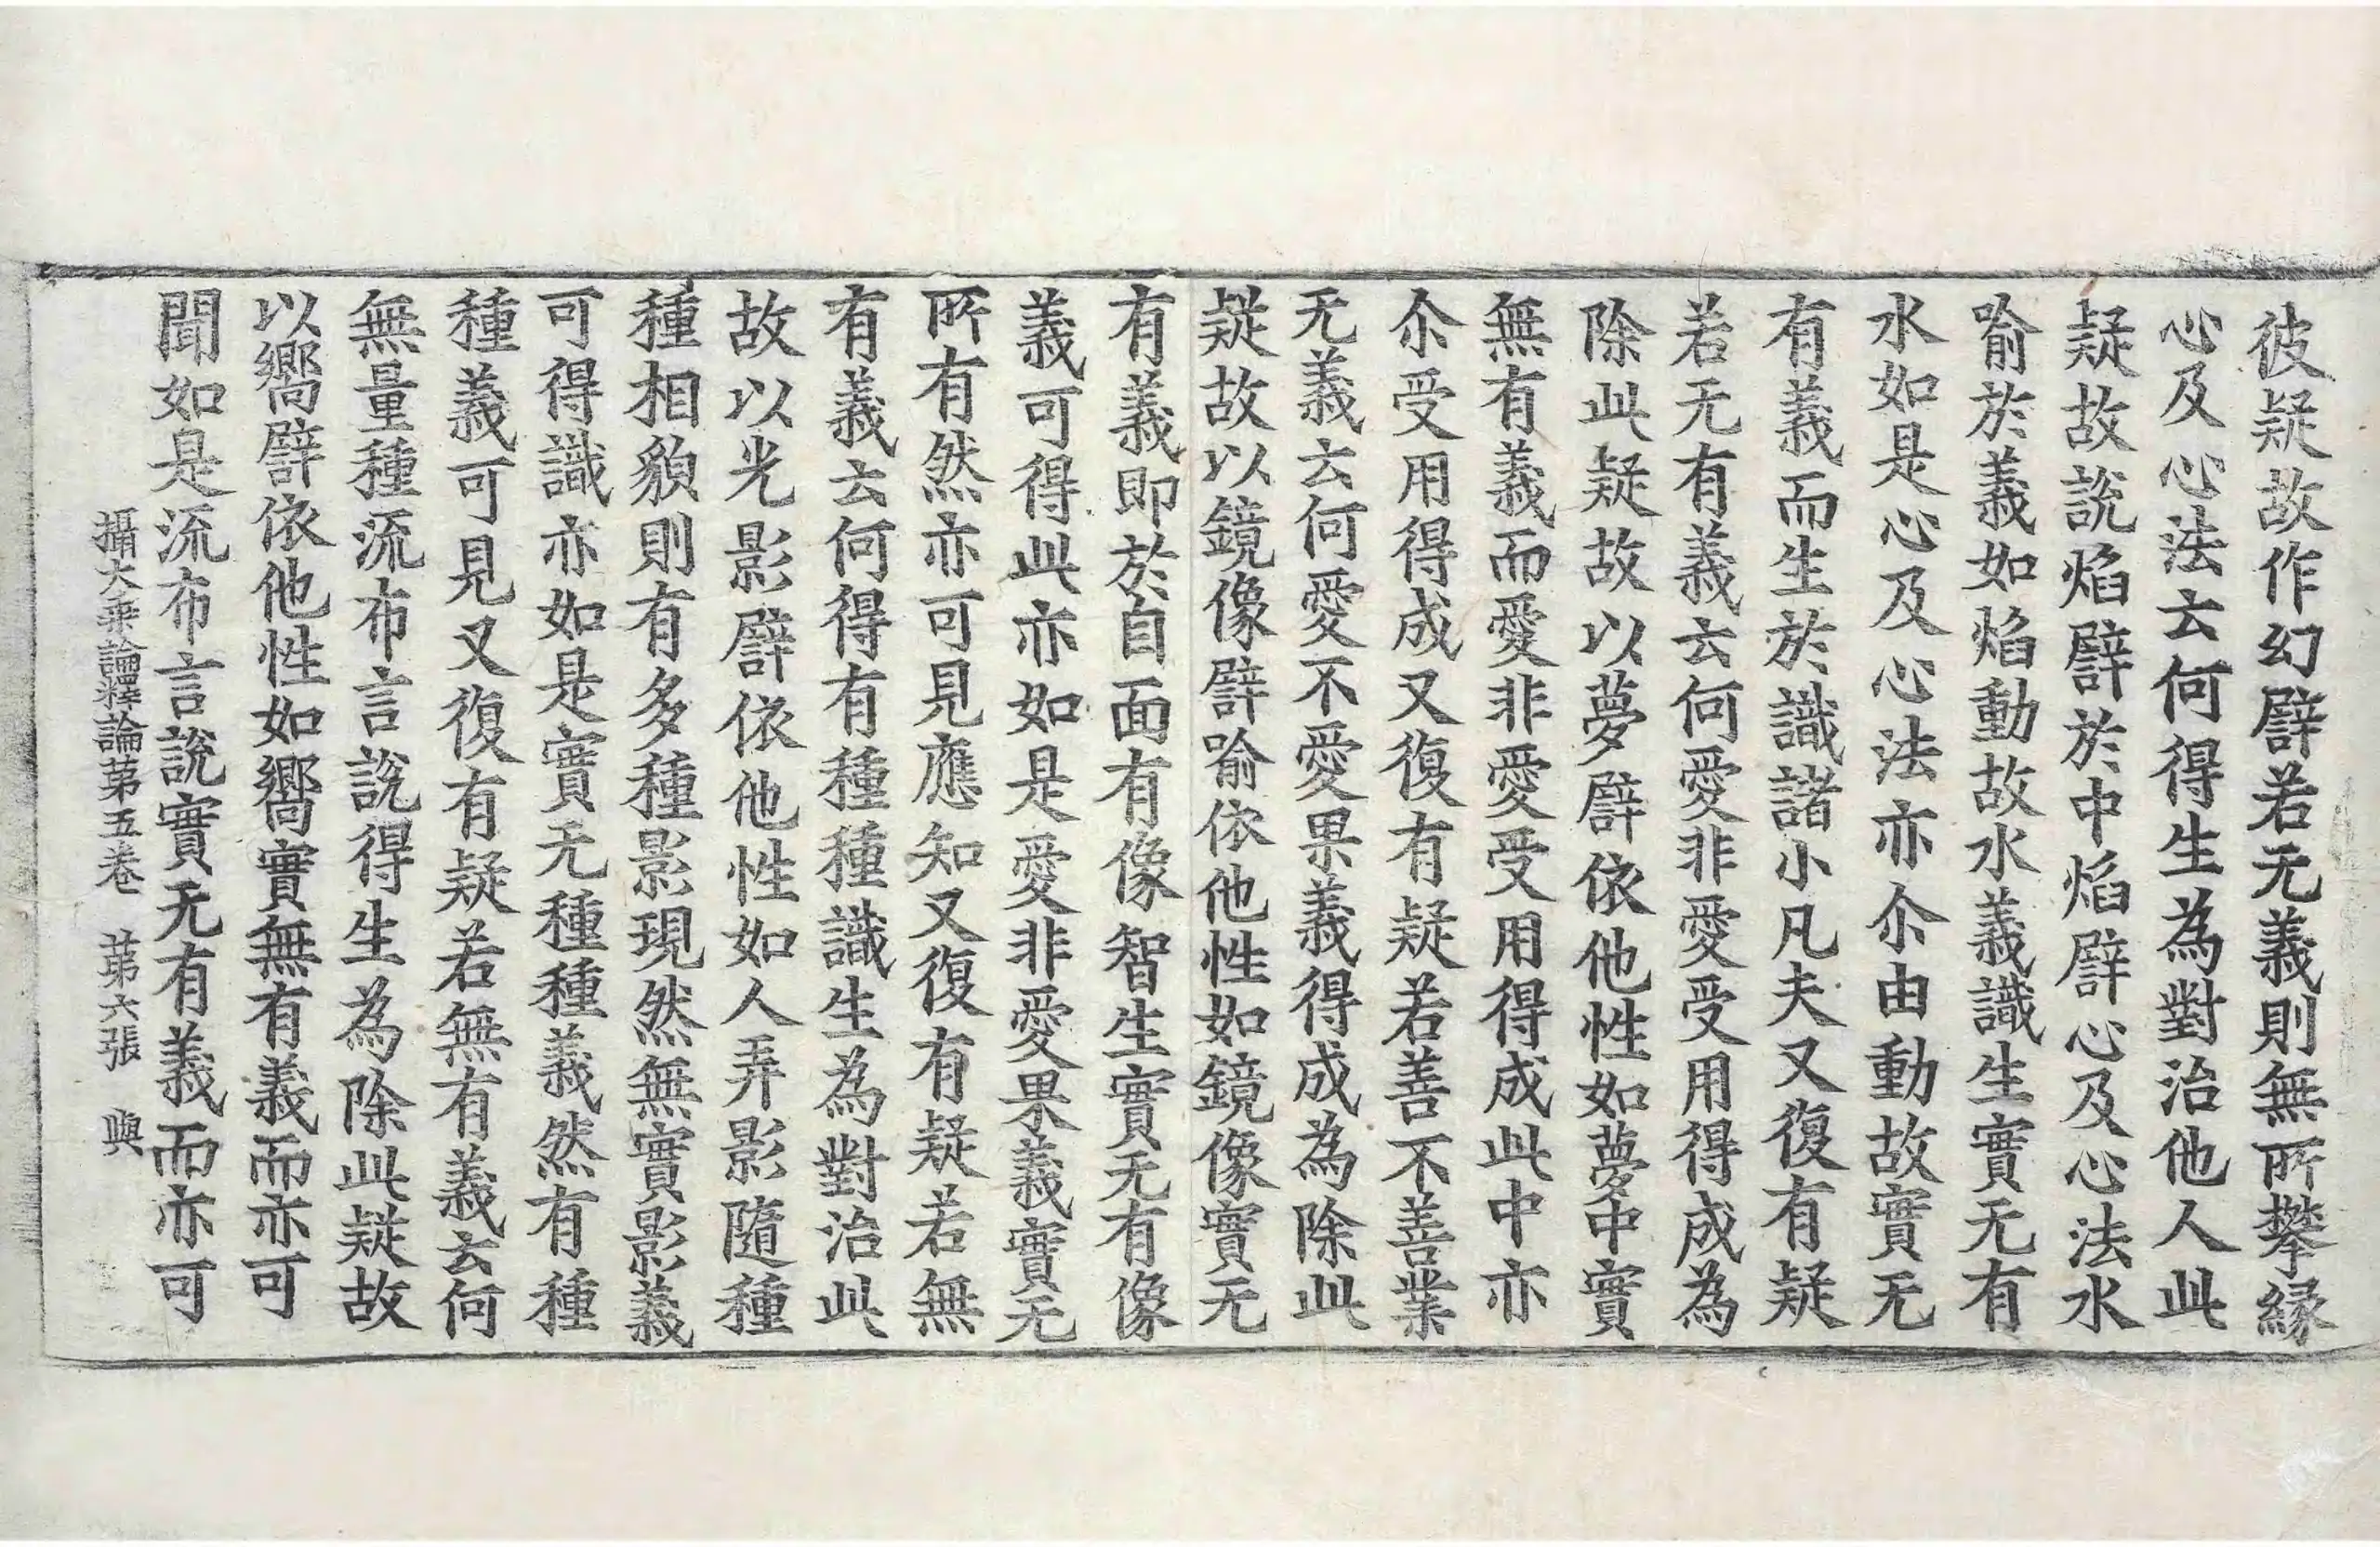 彼疑故作幻譬若无義則無所攀縁
心及心法云何得生為對治他人此
疑故說焰譬於中焰譬心及心法水
喻於義如焰動故水義識生實无有
水如是心及心法亦尒由動故實无
有義而生於識諸小凡夫又復有疑
若无有義云何愛非愛受用得成為
除此疑故以夢譬依他性如夢中實
無有義而愛非愛受用得成此中亦
尒受用得成又復有疑若善不善業
无義云何愛不愛果義得成為除此
疑故以鏡像譬喻依他性如鏡像實无
有義即於自面有像智生實无有像
義可得此亦如是愛非愛果義實无
所有然亦可見應知又復有疑若無
有義云何得有種種識生為對治此
故以光影譬依他性如人弄影隨種
種相貌則有多種影現然無實影義
可得識亦如是實无種種義然有種
種義可見又復有疑若無有義云何
無量種流布言說得生為除此疑故
以嚮譬依他性如嚮實無有義而亦可
聞如是流布言說實无有義而亦可
攝大乘論釋論第五卷　第六張　與